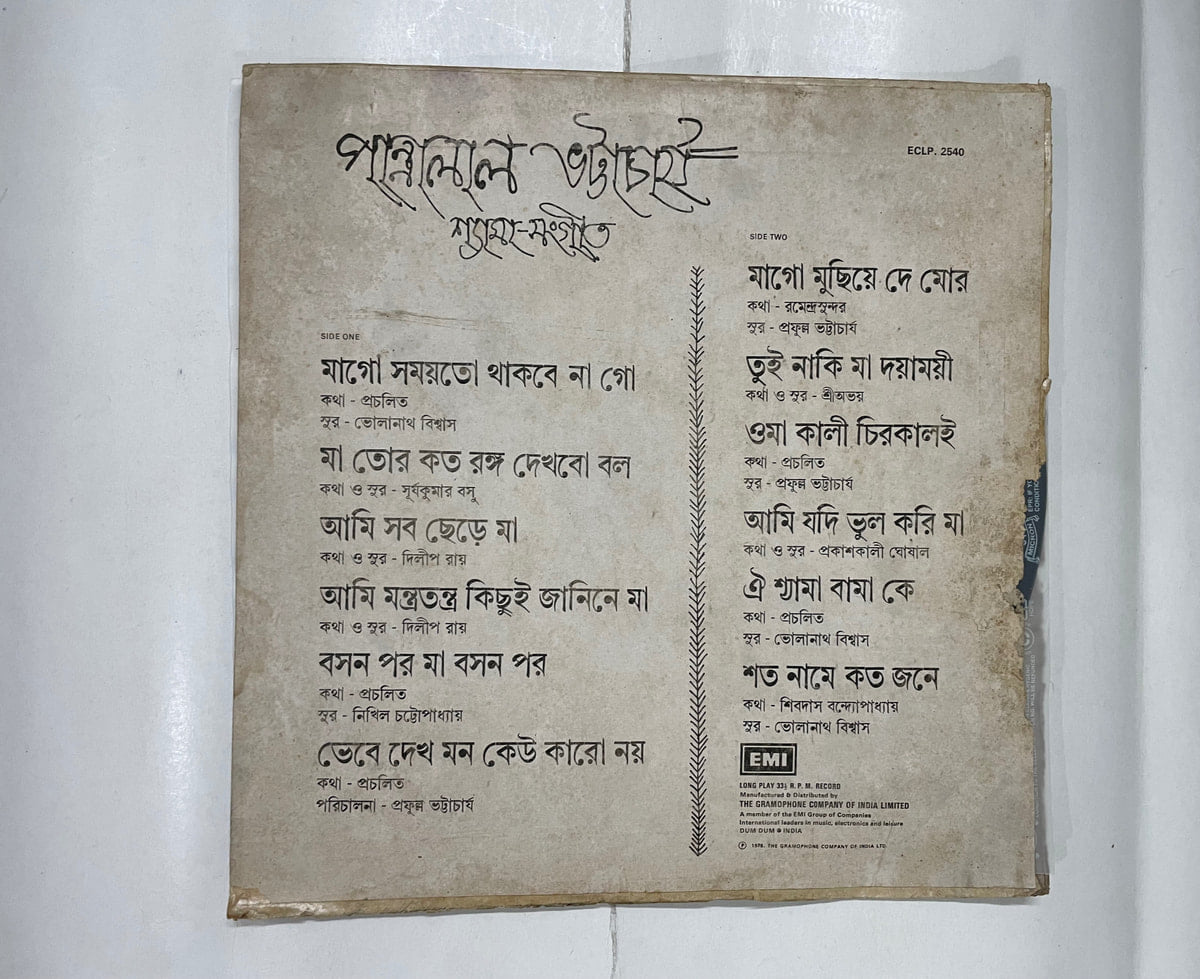 পান্নালাল ভট্টাচার্য
শ্যামা-সংগীত
ECLP. 2540
SIDE ONE
মাগো সময়তো থাকবে না গো
কথা - প্রচলিত
সুর - ভোলানাথ বিশ্বাস
মা তোর কত রঙ্গ দেখবো বল
কথা ও সুর - সূর্যকুমার বসু
আমি সব ছেড়ে মা
কথা ও সুর - দিলীপ রায়
আমি মন্ত্রতন্ত্র কিছুই জানিনে মা
কথা ও সুর - দিলীপ রায়
বসন পর মা বসন পর
কথা - প্রচলিত
সুর - নিখিল চট্টোপাধ্যায়
ভেবে দেখ মন কেউ কারো নয়
কথা - প্রচলিত
পরিচালনা - প্রফুল্ল ভট্টাচার্য
SIDE TWO
মাগো মুছিয়ে দে মোর
কথা - রমেন্দ্রসুন্দর
সুর - প্রফুল্ল ভট্টাচার্য
তুই নাকি মা দয়াময়ী
কথা ও সুর - শ্রীঅভয়
ওমা কালী চিরকালই
কথা - প্রচলিত
সুর - প্রফুল্ল ভট্টাচার্য
আমি যদি ভুল করি মা
কথা ও সুর - প্রকাশকালী ঘোষাল
ঐ শ্যামা বামা কে
কথা - প্রচলিত
সুর - ভোলানাথ বিশ্বাস
শত নামে কত জনে
কথা - শিবদাস বন্দ্যোপাধ্যায়
সুর - ভোলানাথ বিশ্বাস
EMI
LONG PLAY 33⅓ R. P. M. RECORD
Manufactured & Distributed by
THE GRAMOPHONE COMPANY OF INDIA LIMITED
A member of the EMI Group of Companies
International leaders in music, electronics and leisure
DUM DUM INDIA
℗ 1976. THE GRAMOPHONE COMPANY OF INDIA LTD.